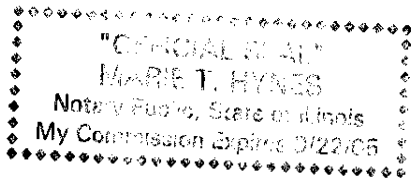 "OFFICIAL SEAL"
MARIE T. HYNES
Notary Public, State of Illinois
My Commission Expires